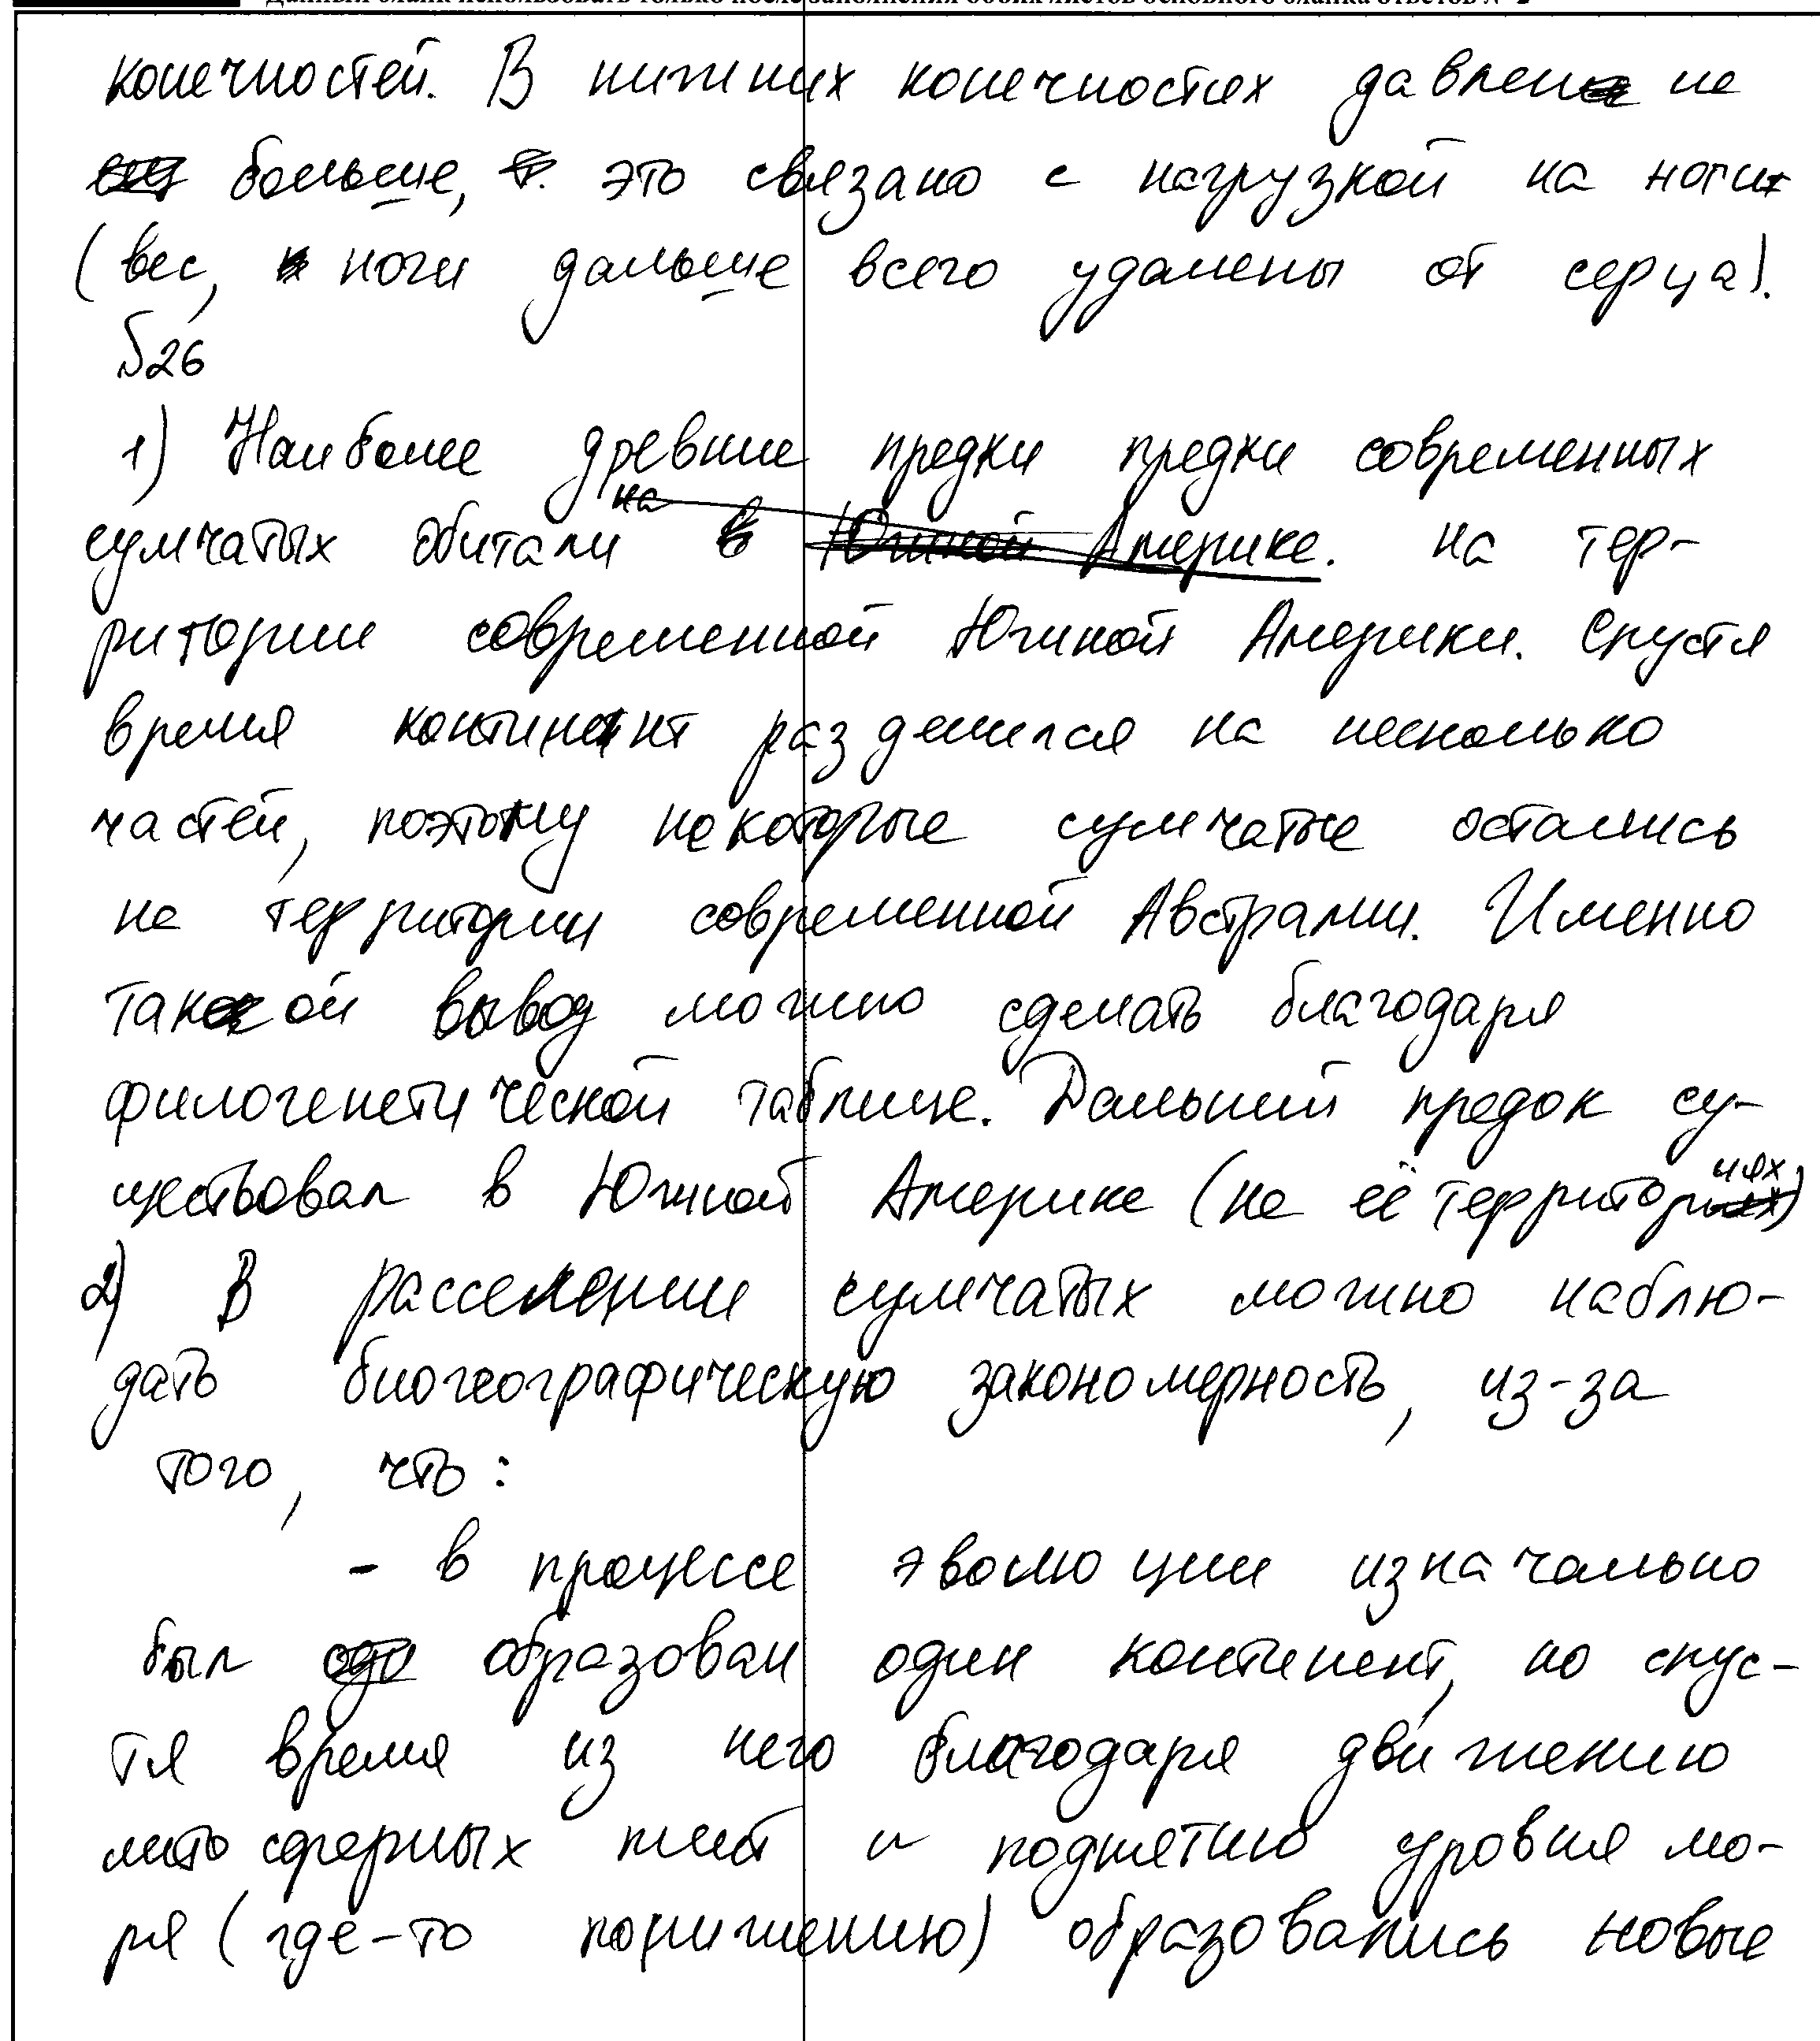 Данный бланк использовать только после заполнения обоих листов основного бланка ответов № 2
конечностей. В нижних конечностях давление
больше, это связано с нагрузкой на ноги
(вес, ноги дальше всего удалены от серца).
№26
1) Наиболее древние предки предки современных
сумчатых обитали на тер-
ритории современной Южной Америки. Спустя
время континент разделился на несколько
частей, поэтому некоторые сумчатые остались
на территории современной Австралии. Именно
такой вывод можно сделать благодаря
филогенетической таблице. Дальний предок су-
ществовал в Южной Америке (на её территориях)
2) В расселении сумчатых можно наблю-
дать биогеографическую закономерность, из-за
того, что:
- в процессе эволюции изначально
был образован один континент, но спус-
тя время из него благодаря движению
литосферных плит и поднятию уровня мо-
ря (где-то понижению) образовались новые